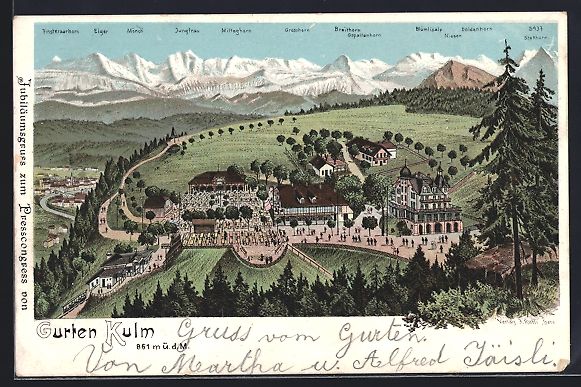 Finsteraarhorn Eiger Mönch Jungfrau Mittaghorn Grosshorn Breithorn Blümlisalp Doldenhorn
Gspaltenhorn Niesen
Jubiläumsgruss zum Presscongress von
Gurten Kulm
861 m ü. d. M.
Gruss vom Gurten.
Von Martha u. Alfred Täisli.